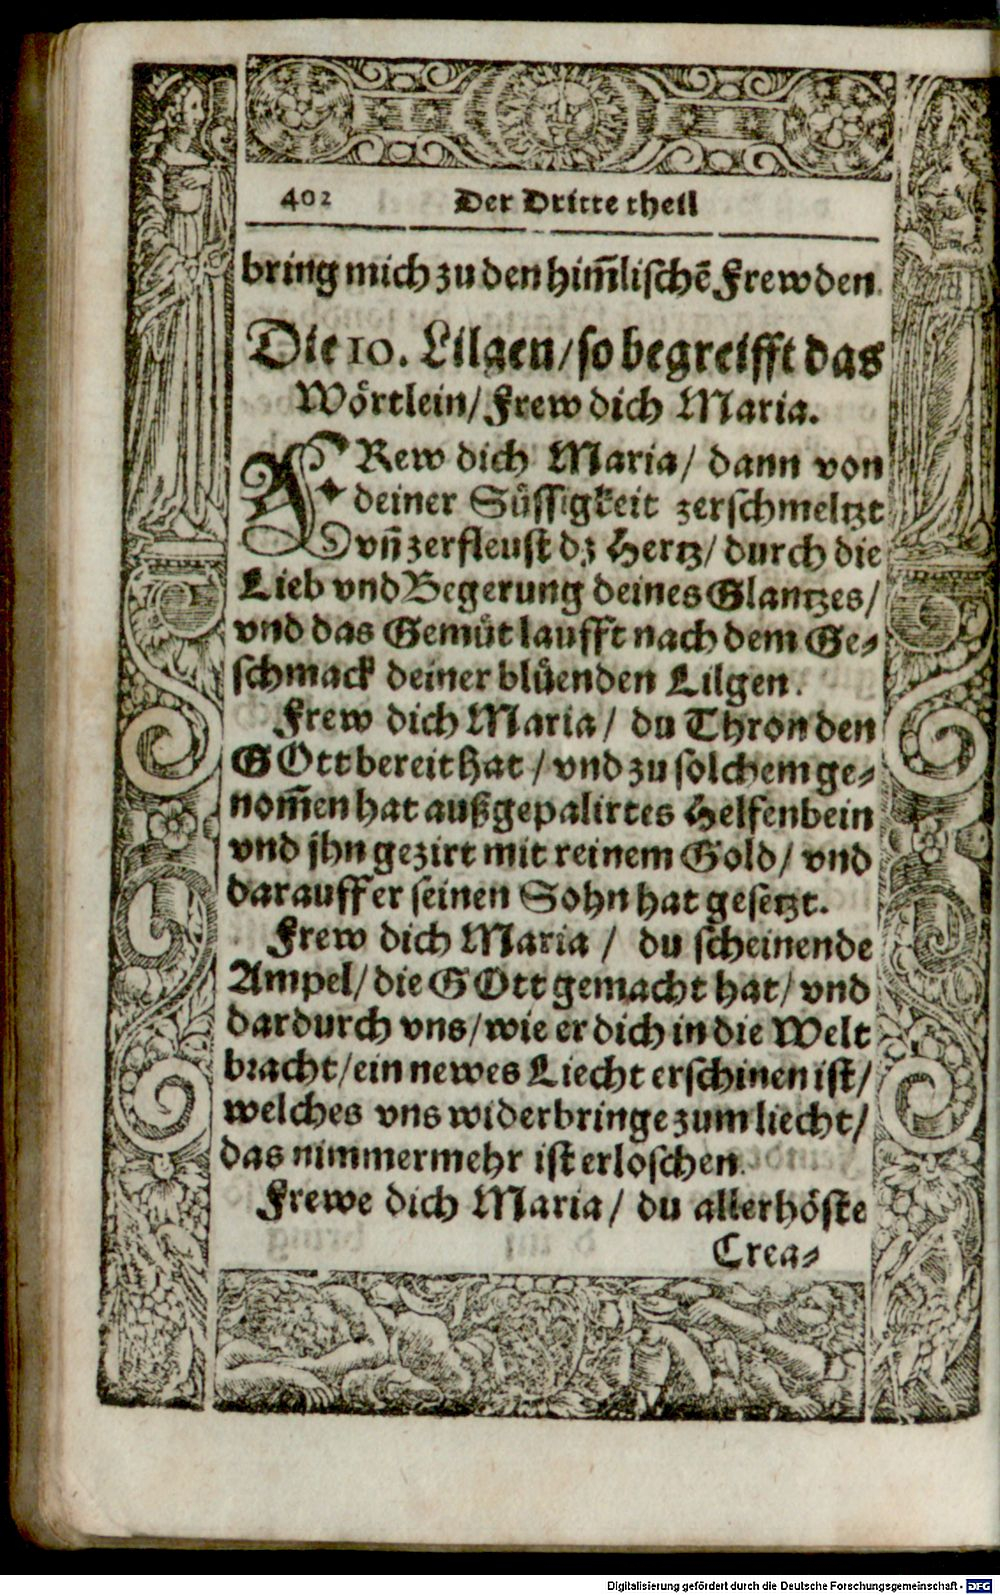 402 Der Dritte theil
bring mich zu den him̃lischẽ Frewden.
Die 10. Lilgen/ so begreifft das
Wörtlein/ Frew dich Maria.
FRew dich Maria/ dann von
deiner Süssigkeit zerschmeltzt
vñ zerfleust dz Hertz/ durch die
Lieb vnd Begerung deines Glantzes/
vnd das Gemüt laufft nach dem Ge-
schmack deiner blüenden Lilgen.
Frew dich Maria/ du Thron den
GOtt bereit hat/ vnd zu solchem ge-
nom̃en hat außgepalirtes Helfenbein
vnd jhn gezirt mit reinem Gold/ vnd
darauff er seinen Sohn hat gesetzt.
Frew dich Maria/ du scheinende
Ampel/ die GOtt gemacht hat/ vnd
dardurch vns/ wie er dich in die Welt
bracht/ ein newes Liecht erschinen ist/
welches vns widerbringe zum liecht/
das nimmermehr ist erloschen.
Frewe dich Maria/ du allerhöste
Crea-
Digitalisierung gefördert durch die Deutsche Forschungsgemeinschaft - DFG